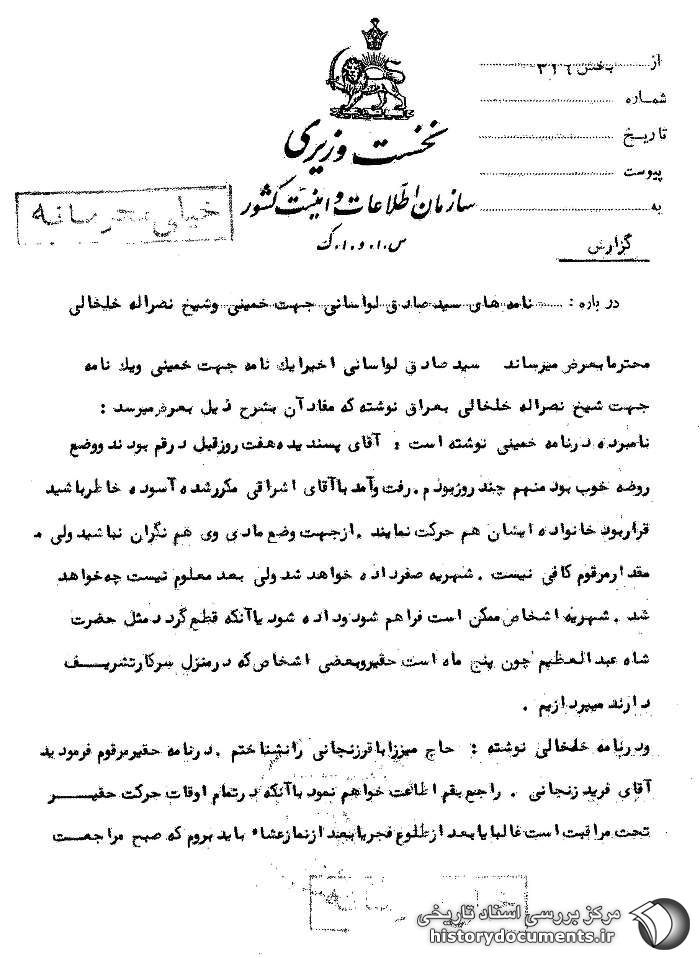 از بخش ۳۱۶
شماره
تاریخ
پیوست
به
نخست وزیری
سازمان اطلاعات و امنیت کشور
س.ا.و.ا.ک
خیلی محرمانه
گزارش
درباره : نامه های سید صادق لواسانی جهت خمینی وشیخ نصراله خلخالی
محترما بعرض میرساند سید صادق لواسانی اخیرا یک نامه جهت خمینی ویک نامه
جهت شیخ نصراله خلخالی بعراق نوشته که مفاد آن بشرح ذیل بعرض میرسد :
نامبرده درنامه خمینی نوشته است : آقای پسندیده هفت روز قبل درقم بودند ووضع
روضه خوب بود منهم چند روز بودم . رفت وآمد با آقای اشراقی مکرر شده آسوده خاطر باشید
قرار بود خانواده ایشان هم حرکت نمایند . از جهت وضع مادی وی هم نگران نباشید ولی
مقدار مرقوم کافی نیست . شهریه صفر داده خواهد شد ولی بعد معلوم نیست چه خواهد
شد . شهریه اشخاص ممکن است فراهم شود وداده شود یا آنکه قطع گردد مثل حضرت
شاه عبدالعظیم چون پنج ماه است حقیر وبعضی اشخاص که درمنزل سرکار تشریف
دارند میپردازیم .
ودرنامه خلخالی نوشته : حاج میرزا باقر زنجانی را نشناختم . درنامه حقیر مرقوم فرمودید
آقای فرید زنجانی . راجع بقم اطاعت خواهم نمود با آنکه درتمام اوقات حرکت حقیر
تحت مراقبت است غالبا یا بعد از طلوع فجر یا بعد از نماز عشاء باید بروم که صبح مراجعت
خیلی محرمانه
مرکز بررسی اسناد تاریخی
historydocuments.ir